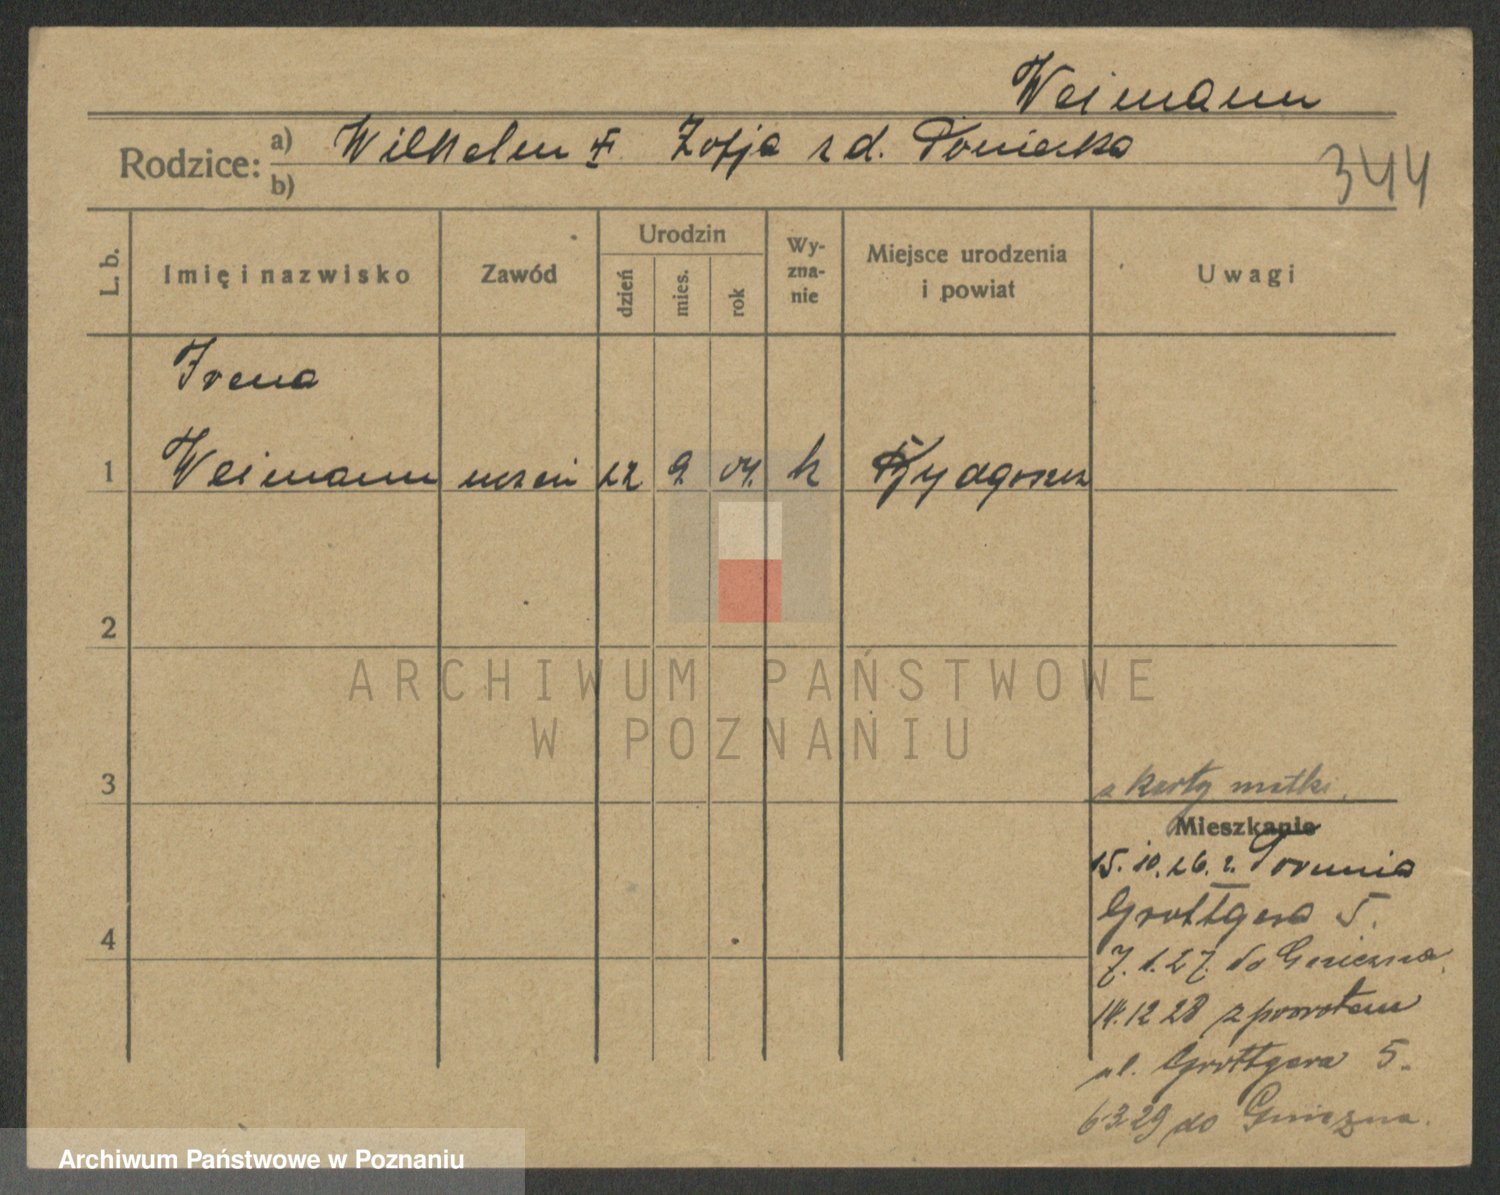 Weimann
Rodzice: a) Wilhelm i Zofja z d. Poniecka
b)
344
L. b.
Imię i nazwisko
Zawód
Urodzin
dzień
mies.
rok
Wy-
zna-
nie
Miejsce urodzenia
i powiat
Uwagi
Irena
1 Weimann uczeń 22 9. 04. k Bydgoszcz
2
ARCHIWUM PAŃSTWOWE
W POZNANIU
3
z karty matki.
Mieszkanie
15.10.26. z Torunia
Grottgera 5.
4
7.1.27. do Gniezna.
14.12 28 z powrotem
ul. Grottgera 5.
6 3 29 do Gniezna.
Archiwum Państwowe w Poznaniu